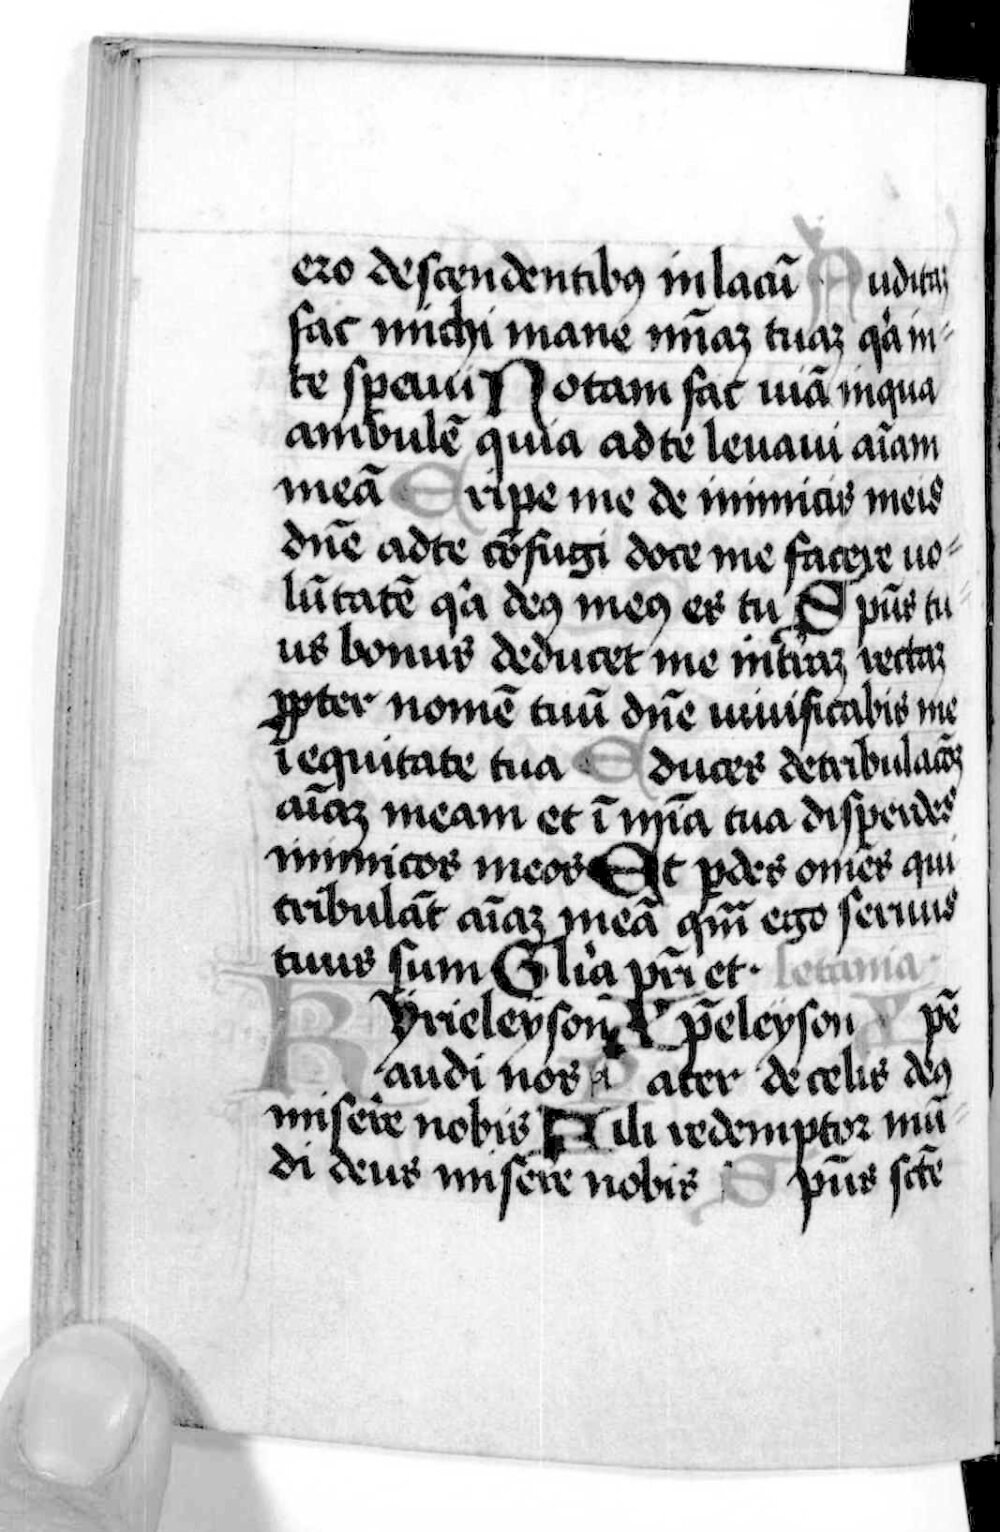 ero descendentibꝯ in lacū Auditaꝫ
fac michi mane mīaꝫ tuaꝫ qͥa in-
te speaui Notam fac uiā inqua
ambulē quia adte leuaui aīam
meā Eripe me de inimicis meis
dn̄e adte cōfugi doce me facere uo-
lūtatē qͥa deꝯ meꝯ es tu Sp̄us tu-
us bonus deducet me int̄raꝫ rectaꝫ
ꝓpter nomē tuū dn̄e uiuificabis me
ī equitate tua Educes detribulacōe
aīaꝫ meam et ī mīa tua disperdes
inimicos meos Et ꝑdes om̄es qui
tribulāt aīaꝫ meā qm̄ ego seruus
tuus sum Glīa pr̄i et. letania.
Kyrieleyson Xp̄eleyson Xpē
audi nos Pater de celis deꝯ
miser̄e nobis Fili redemptor mū-
di deus miser̄e nobis Sp̄us sctē